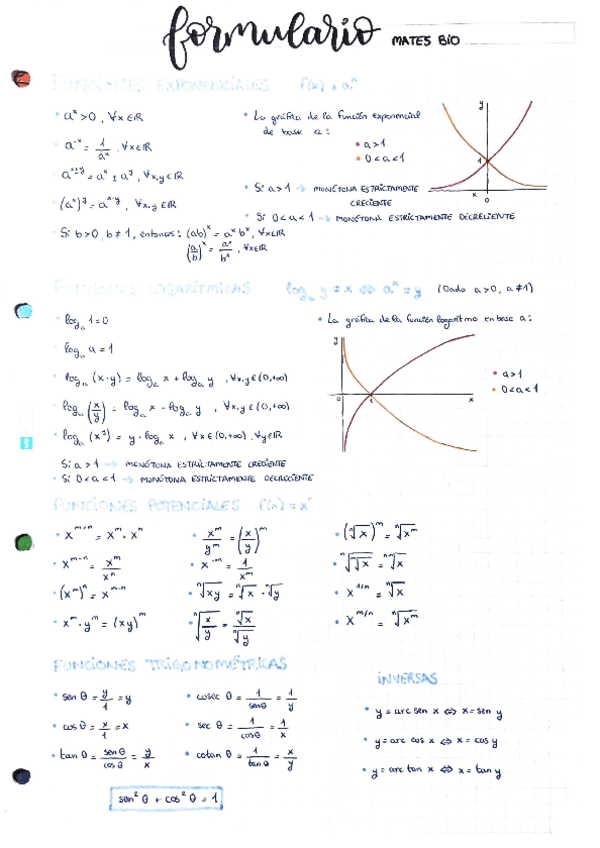 formulario MATES BIO
FUNCIONES EXPONENCIALES f(x) = aˣ
• aˣ > 0, ∀x∈ℝ
• a⁻ˣ = 1/aˣ, ∀x∈ℝ
• aˣ⁺ʸ = aˣ · aʸ, ∀x,y∈ℝ
• (aˣ)ʸ = aˣ·ʸ, ∀x,y∈ℝ
• Si b>0, b≠1, entonces: (ab)ˣ = aˣ bˣ, ∀x∈ℝ
(a/b)ˣ = aˣ/bˣ, ∀x∈ℝ
• La gráfica de la función exponencial
de base a:
• a>1
• 0<a<1
• Si a>1 → MONÓTONA ESTRICTAMENTE
CRECIENTE
• Si 0<a<1 → MONÓTONA ESTRICTAMENTE DECRECIENTE
y
1
x
0
FUNCIONES LOGARÍTMICAS logₐ y = x ⇔ aˣ = y (Dado a>0, a≠1)
• logₐ 1 = 0
• logₐ a = 1
• logₐ (x·y) = logₐ x + logₐ y, ∀x,y∈(0,+∞)
• logₐ (x/y) = logₐ x - logₐ y, ∀x,y∈(0,+∞)
• logₐ (xʸ) = y · logₐ x, ∀x∈(0,+∞), ∀y∈ℝ
• Si a>1 → MONÓTONA ESTRICTAMENTE CRECIENTE
• Si 0<a<1 → MONÓTONA ESTRICTAMENTE DECRECIENTE
• La gráfica de la función logaritmo en base a:
y
0
1
x
• a>1
• 0<a<1
FUNCIONES POTENCIALES f(x) = xʳ
• xᵐ⁺ⁿ = xᵐ · xⁿ
• xᵐ⁻ⁿ = xᵐ/xⁿ
• (xᵐ)ⁿ = xᵐ·ⁿ
• xᵐ · yᵐ = (xy)ᵐ
• xᵐ/yᵐ = (x/y)ᵐ
• x⁻ᵐ = 1/xᵐ
• ⁿ√xy = ⁿ√x · ⁿ√y
• ⁿ√(x/y) = ⁿ√x/ⁿ√y
• (ⁿ√x)ᵐ = ⁿ√xᵐ
• ⁿ√ᵐ√x = ⁿᵐ√x
• x¹ᐟⁿ = ⁿ√x
• xᵐᐟⁿ = ⁿ√xᵐ
FUNCIONES TRIGONOMÉTRICAS
• sen θ = y/1 = y
• cos θ = x/1 = x
• tan θ = sen θ/cos θ = y/x
• cosec θ = 1/senθ = 1/y
• sec θ = 1/cosθ = 1/x
• cotan θ = 1/tan θ = x/y
sen² θ + cos² θ = 1
INVERSAS
• y = arc sen x ⇔ x = sen y
• y = arc cos x ⇔ x = cos y
• y = arc tan x ⇔ x = tan y